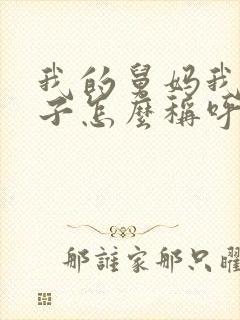 我的舅妈我
子怎麼稱呼
那誰家那只曜